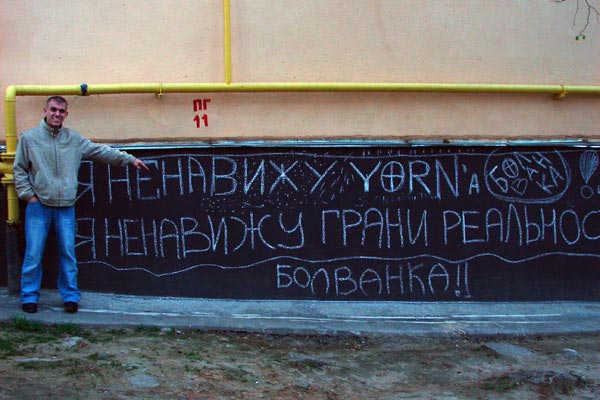 ПГ
11
Я НЕНАВИЖУ YORN'а БОЛВАНКА!
Я НЕНАВИЖУ ГРАНИ РЕАЛЬНОС
БОЛВАНКА!!